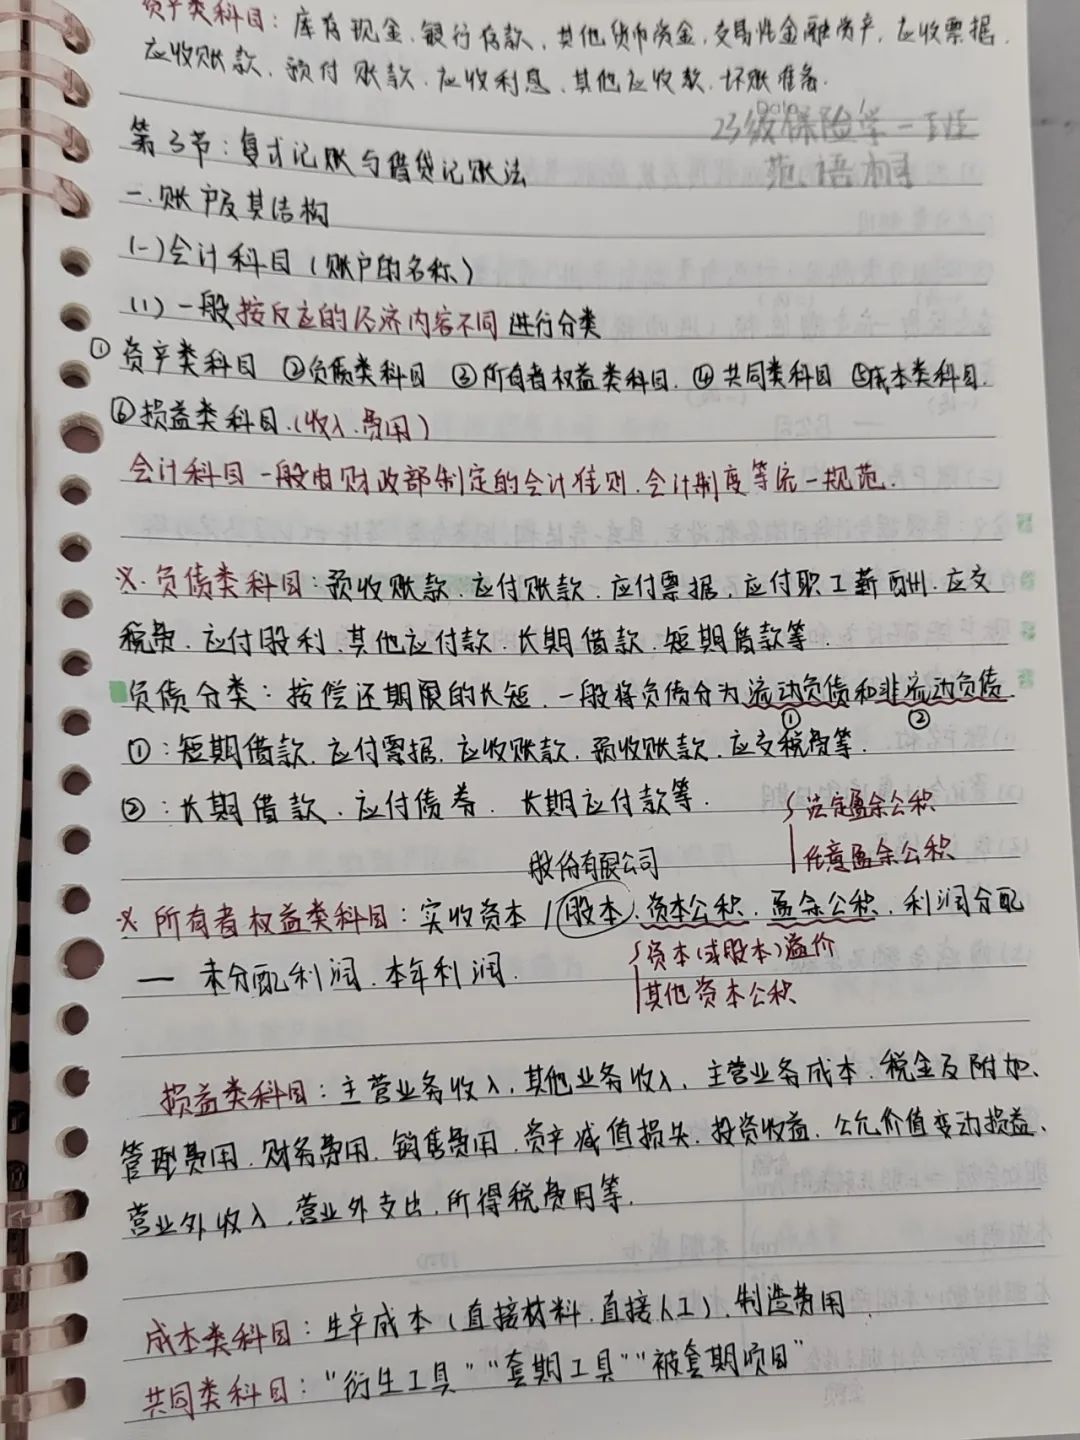 资产类科目：库存现金、银行存款、其他货币资金、交易性金融资产、应收票据、
应收账款、预付账款、应收利息、其他应收款、坏账准备.
Date /
23级保险学一班
范语桐
第3节：复式记账与借贷记账法
一.账户及其结构
(一)会计科目（账户的名称）
(1)一般按反应的经济内容不同进行分类
①资产类科目 ②负债类科目 ③所有者权益类科目. ④共同类科目 ⑤成本类科目.
⑥损益类科目.(收入.费用)
会计科目一般由财政部制定的会计准则.会计制度等统一规范.
※.负债类科目：预收账款.应付账款.应付票据.应付职工薪酬.应交
税费.应付股利.其他应付款.长期借款.短期借款等.
负债分类：按偿还期限的长短.一般将负债分为流动负债和非流动负债
① ②
①：短期借款.应付票据.应收账款.预收账款.应交税费等.
②：长期借款.应付债券.长期应付款等.
法定盈余公积
任意盈余公积
股份有限公司
※所有者权益类科目：实收资本/(股本).资本公积.盈余公积.利润分配
— 未分配利润.本年利润.
资本(或股本)溢价
其他资本公积
损益类科目：主营业务收入.其他业务收入.主营业务成本.税金及附加、
管理费用.财务费用.销售费用.资产减值损失.投资收益.公允价值变动损益、
营业外收入.营业外支出.所得税费用等.
成本类科目：生产成本(直接材料.直接人工).制造费用
共同类科目："衍生工具""套期工具""被套期项目"